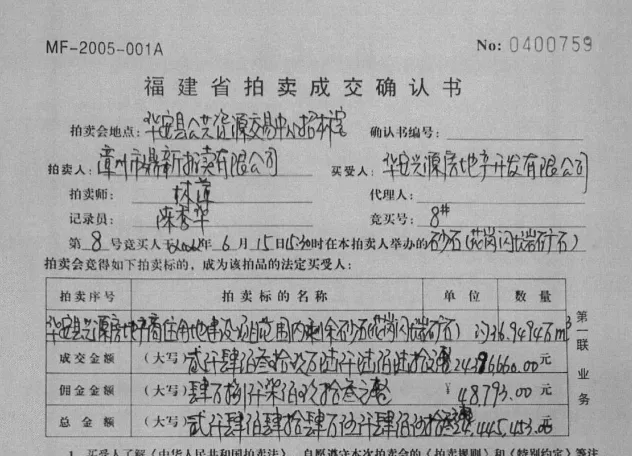 MF-2005-001A No: 0400759
福建省拍卖成交确认书
拍卖会地点: 华安县公共资源交易中心招标室 确认书编号:
拍卖人: 漳州市鼎新拍卖有限公司 买受人: 华安兴源房地产开发有限公司
拍卖师: 林 代理人:
记录员: 陈秀华 竞买号: 8#
第 8 号竞买人于 年 6 月 15日15:30时在本拍卖人举办的 砂石(花岗闪长岩矿石)
拍卖会竞得如下拍卖标的，成为该拍品的法定买受人:
拍卖序号 拍卖标的名称 单位 数量
华安县兴源房地产商住用地建设项目范围内剩余砂石(花岗闪长岩矿石) 约36.9494万m³
成交金额 (大写) 贰仟肆佰叁拾玖万陆仟陆佰陆拾元整 24396660.00 元
佣金金额 (大写) 肆万捌仟柒佰玖拾叁元整 ¥ 48,793.00 元
总金额 (大写) 贰仟肆佰肆拾肆万伍仟肆佰伍拾叁元整 24,445,453.00 元
第一联 业务
1、买受人了解《中华人民共和国拍卖法》，自愿遵守本次拍卖会的《拍卖规则》和《特别约定》等注